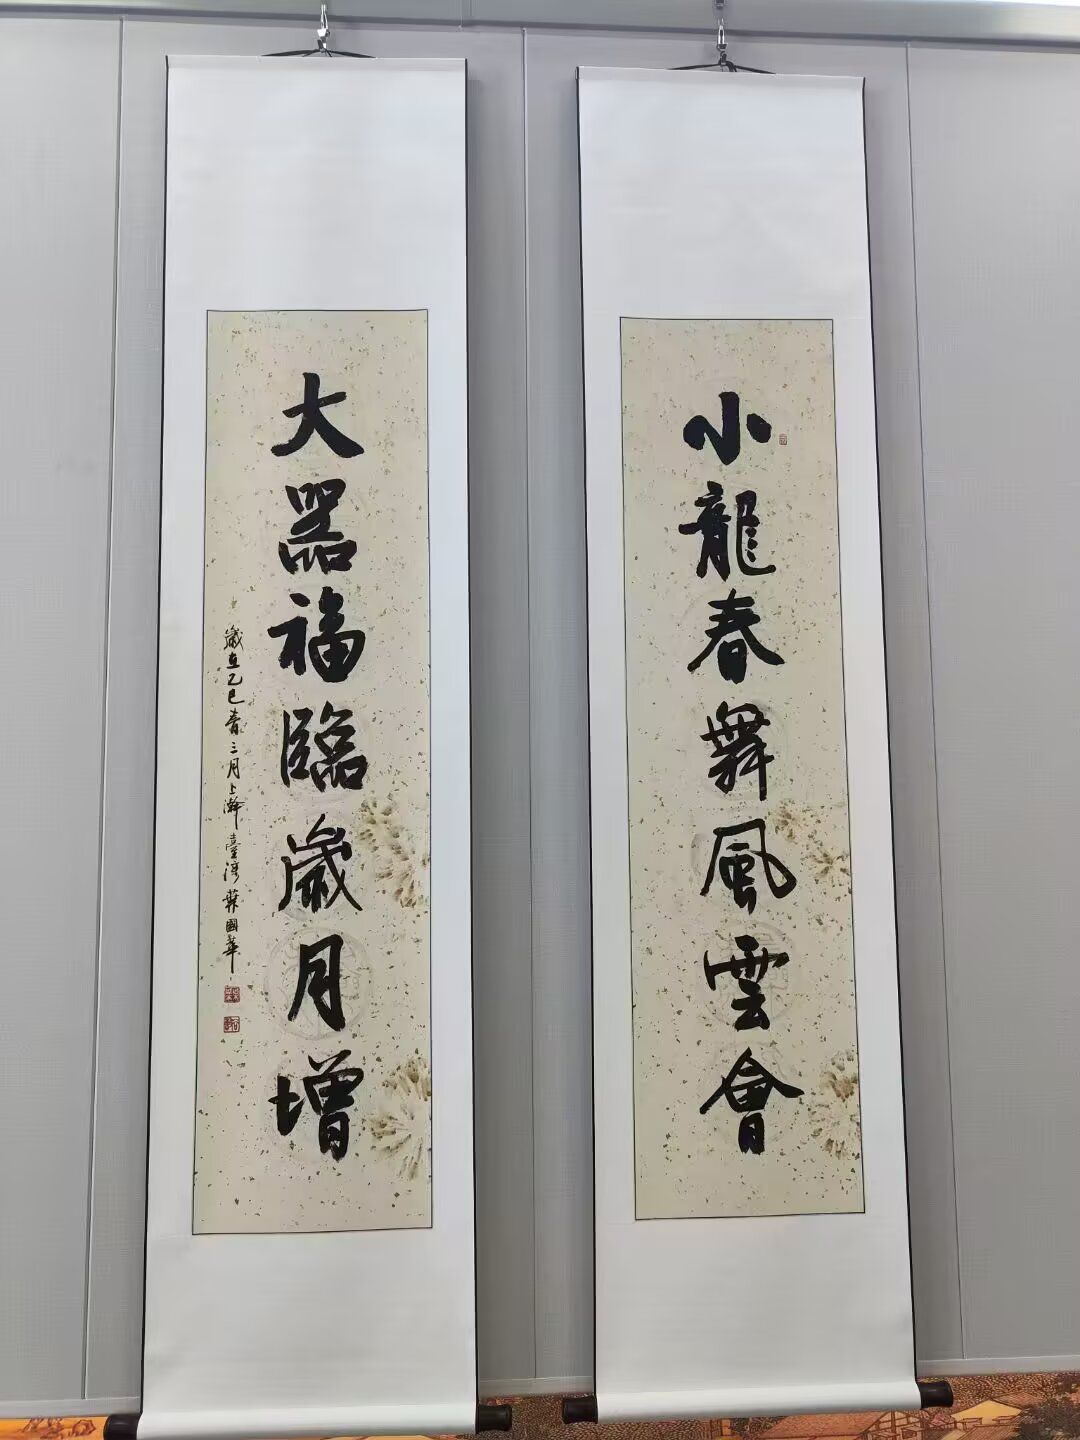 小龍春舞風雲會
大器福臨歲月增
歲在乙巳春三月上澣臺灣蘇國華